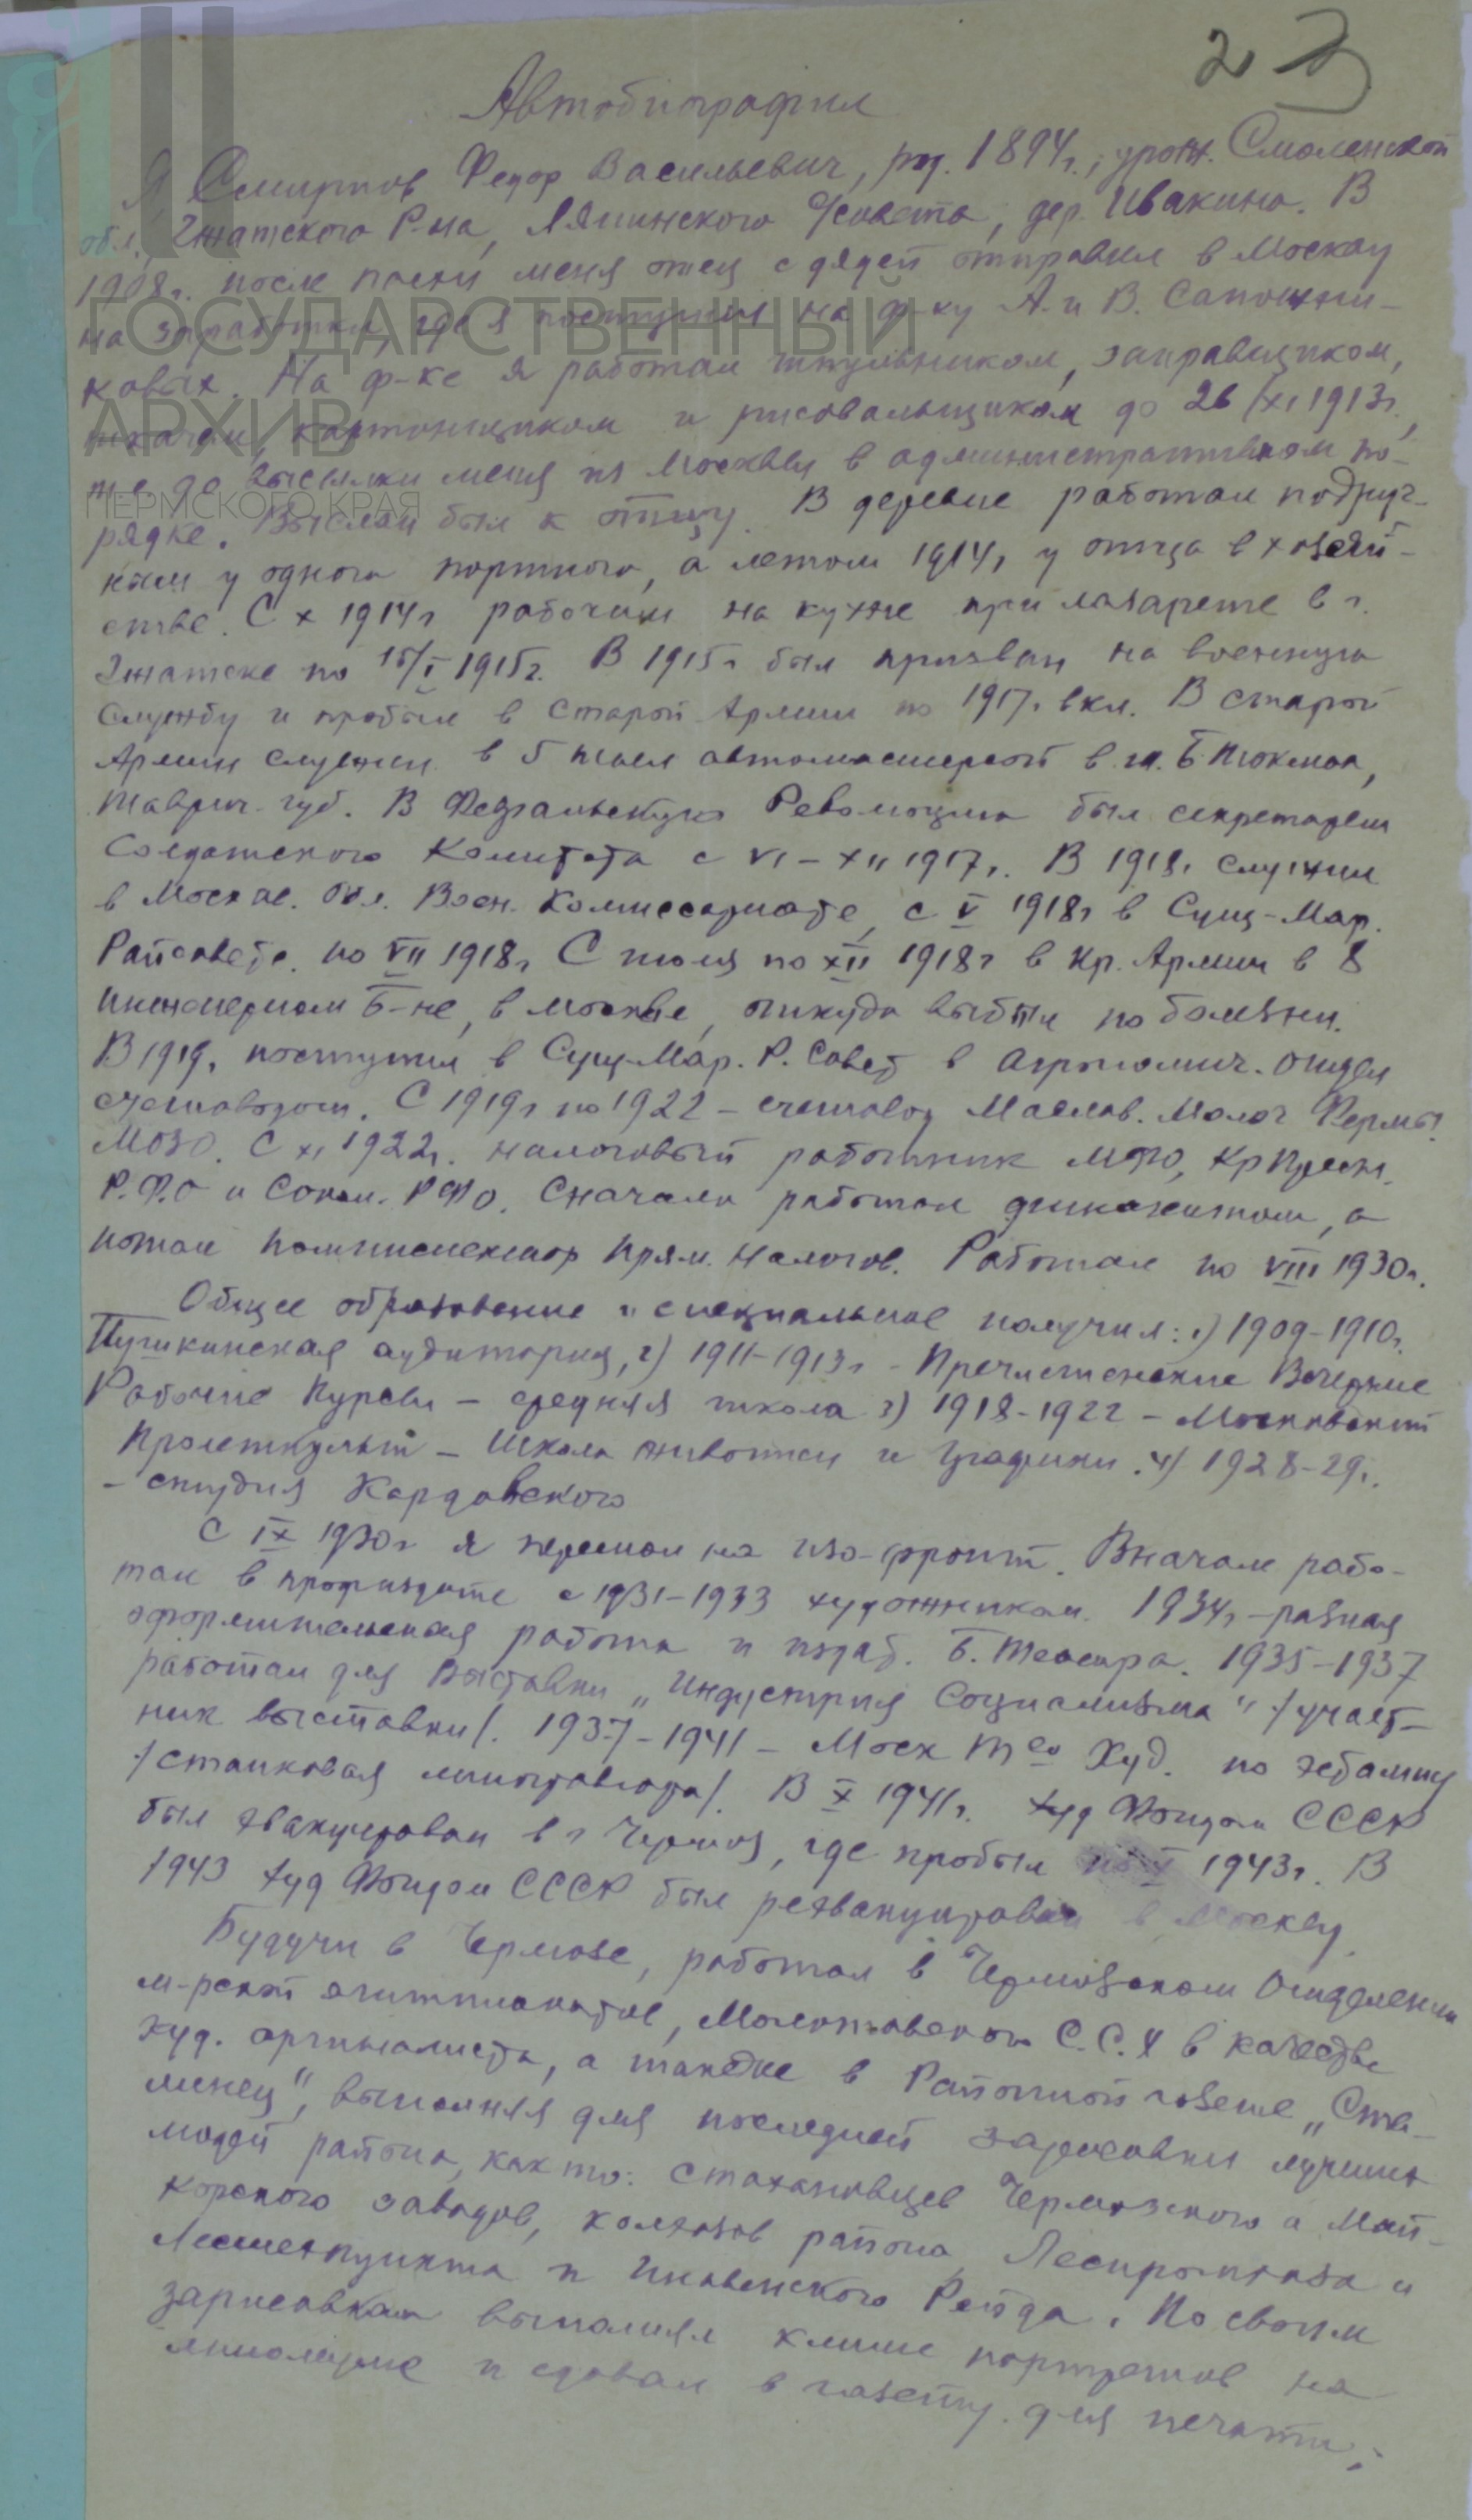 23
Автобиография
Я Смирнов Федор Васильевич, род. 1894г., урож. Смоленской
обл., Гжатского Р-на, Лялинского С/совета, дер. Ивакино. В
1908г. после пасхи меня отец с дядей отправил в Москву
на заработки, где я поступил на ф-ку А. и В. Сапожни-
ковых. На ф-ке я работал шпульником, заправщиком,
ткачем, картонщиком и рисовальщиком до 26/XI 1913г.,
т.е. до высылки меня из Москвы в административном по-
рядке. Выслан был к отцу. В деревне работал подруч-
ным у одного портного, а летом 1914г у отца в хозяй-
стве. С X 1914г рабочим на кухне при лазарете в г.
Гжатске по 15/I 1915г. В 1915г был призван на военную
службу и пробыл в старой Армии по 1917г вкл. В старой
Армии служил в 5 тыл автомастерской в м. Б. Токмак,
Таврич. губ. В Февральскую Революцию был секретарем
Солдатского Комитета с VI – XII 1917г. В 1918г служил
в Москве. Обл. Воен. Комиссариате, с V 1918г в Сущ-Мар.
Райсовете по VII 1918г. С июля по XII 1918г в Кр. Армии в 8
инженерном б-не, в Москве, откуда выбыл по болезни.
В 1919г поступил в Сущ-Мар. Р. Совет в агрономич. отдел
счетоводом. С 1919г по 1922 – счетовод Маслов. Молоч Фермы
МОЗО. С XI 1922г. налоговый работник МФО, Кр Пресн.
Р.Ф.О и Сокол. РФО. Сначала работал финагентом, а
потом поминспектор прям. налогов. Работал по VIII 1930г.
Общее образование и специальное получил: 1) 1909-1910г.
Пушкинская аудитория, 2) 1911-1913г - Пречистенские Вечерние
Рабочие Курсы – средняя школа 3) 1918-1922 – Московский
Пролеткульт – Школа живописи и графики. 4) 1928-29г.
- студия Кардовского
С IX 1930г я перешол на изо-фронт. Вначале рабо-
тал в профиздате с 1931-1933 художником. 1934г – разная
оформительская работа и издат. Б. Театра. 1935-1937
работал для Выставки „Индустрия Социализма" /участ-
ник выставки/. 1937-1941 – Моск Т-во Худ. по эстампу
/станковая линогравюра/. В X 1941г. Худ Фондом СССР
был эвакуирован в г Чермоз, где пробыл по 1943г. В
1943 Худ Фондом СССР был реэвакуирован в Москву.
Будучи в Чермозе, работал в Чермозском Отделении
м-рской агитплакатов, Молотовского С.С.Х в качестве
худ. оригиналиста, а также в Районной газете „Ста-
линец", выполняя для последней зарисовки лучших
людей района, как то: стахановцев Чермозского и Май-
корского заводов, колхозов района, Леспромхоза и
Лесмехпункта и Иньвенского Рейда. По своим
зарисовкам выполнял клише портретов на
линолеуме и сдавал в газету для печати.
ГОСУДАРСТВЕННЫЙ
АРХИВ
ПЕРМСКОГО КРАЯ